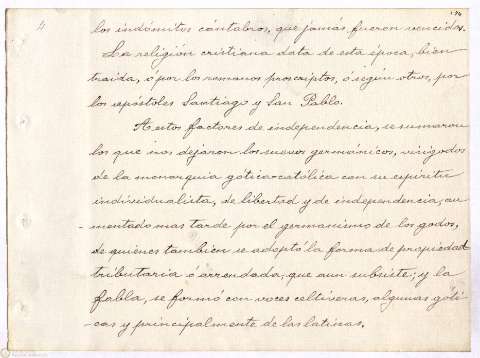 4
los indómitos cántabros, que jamás fueron vencidos.
La religión cristiana data de esta época, bien
traida, ó por los romanos proscriptos, ó según otros, por
los apóstoles Santiago y San Pablo.
A estos factores de independencia, se sumaron
los que nos dejaron los suevos germánicos, visigodos
de la monarquia gótico-católica con su espíritu
individualista, de libertad y de independencia, au
-mentado mas tarde por el germanismo de los godos,
de quienes tambien se adoptó la forma de propiedad
tributaria ó arrendada, que aun subsiste; y la
fabla, se formó con voces celtiveras, algunas góti-
-cas y principalmente de las latinas.